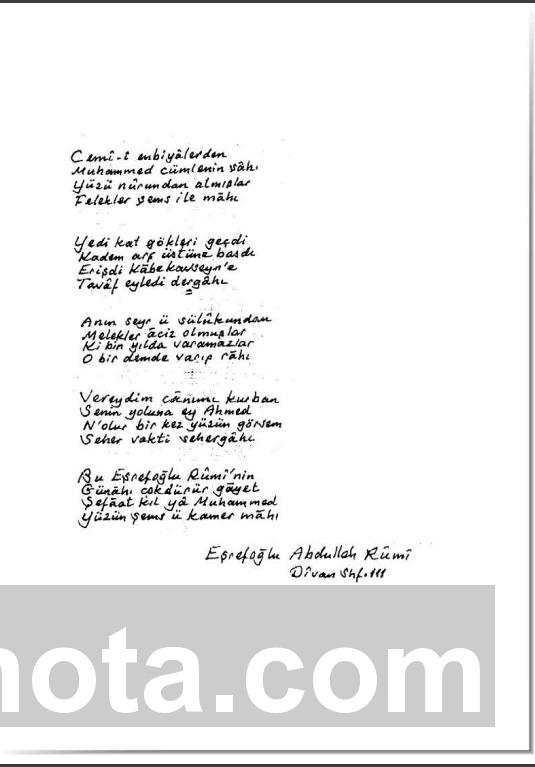 Cemî-i enbiyâlerden
Muhammed cümlenin şâhı
Yüzü nûrundan almışlar
Felekler şems ile mâhı
Yedi kat gökleri geçdi
Kadem arş üstüne basdı
Erişdi Kâbe Kavseyn'e
Tavâf eyledi dergâhı
Anın seyr ü sülûkundan
Melekler âciz olmuşlar
Ki bin yılda varamazlar
O bir demde varıp râhı
Vereydim cânımı kurban
Senin yoluna ey Ahmed
N'olur bir kez yüzün görsem
Seher vakti sehergâhı
Bu Eşrefoğlu Rûmî'nin
Günâhı çokdürür gâyet
Şefâat kıl yâ Muhammed
Yüzün şems ü kamer mâhı
Eşrefoğlu Abdullah Rûmî
Dîvan Shf.111
nota.com